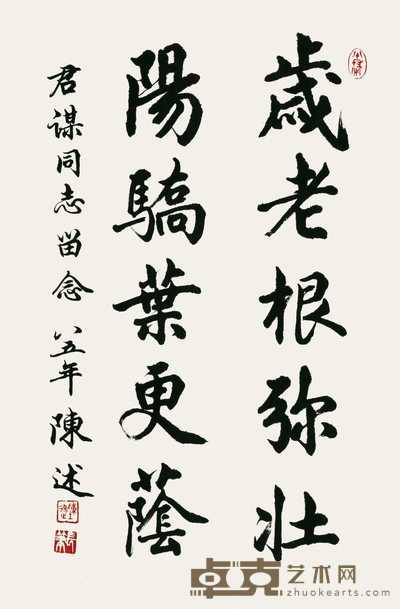 歲老根弥壮
陽驕葉更蔭
君謀同志留念 八五年 陳述
卓克艺术网
zhuokearts.com